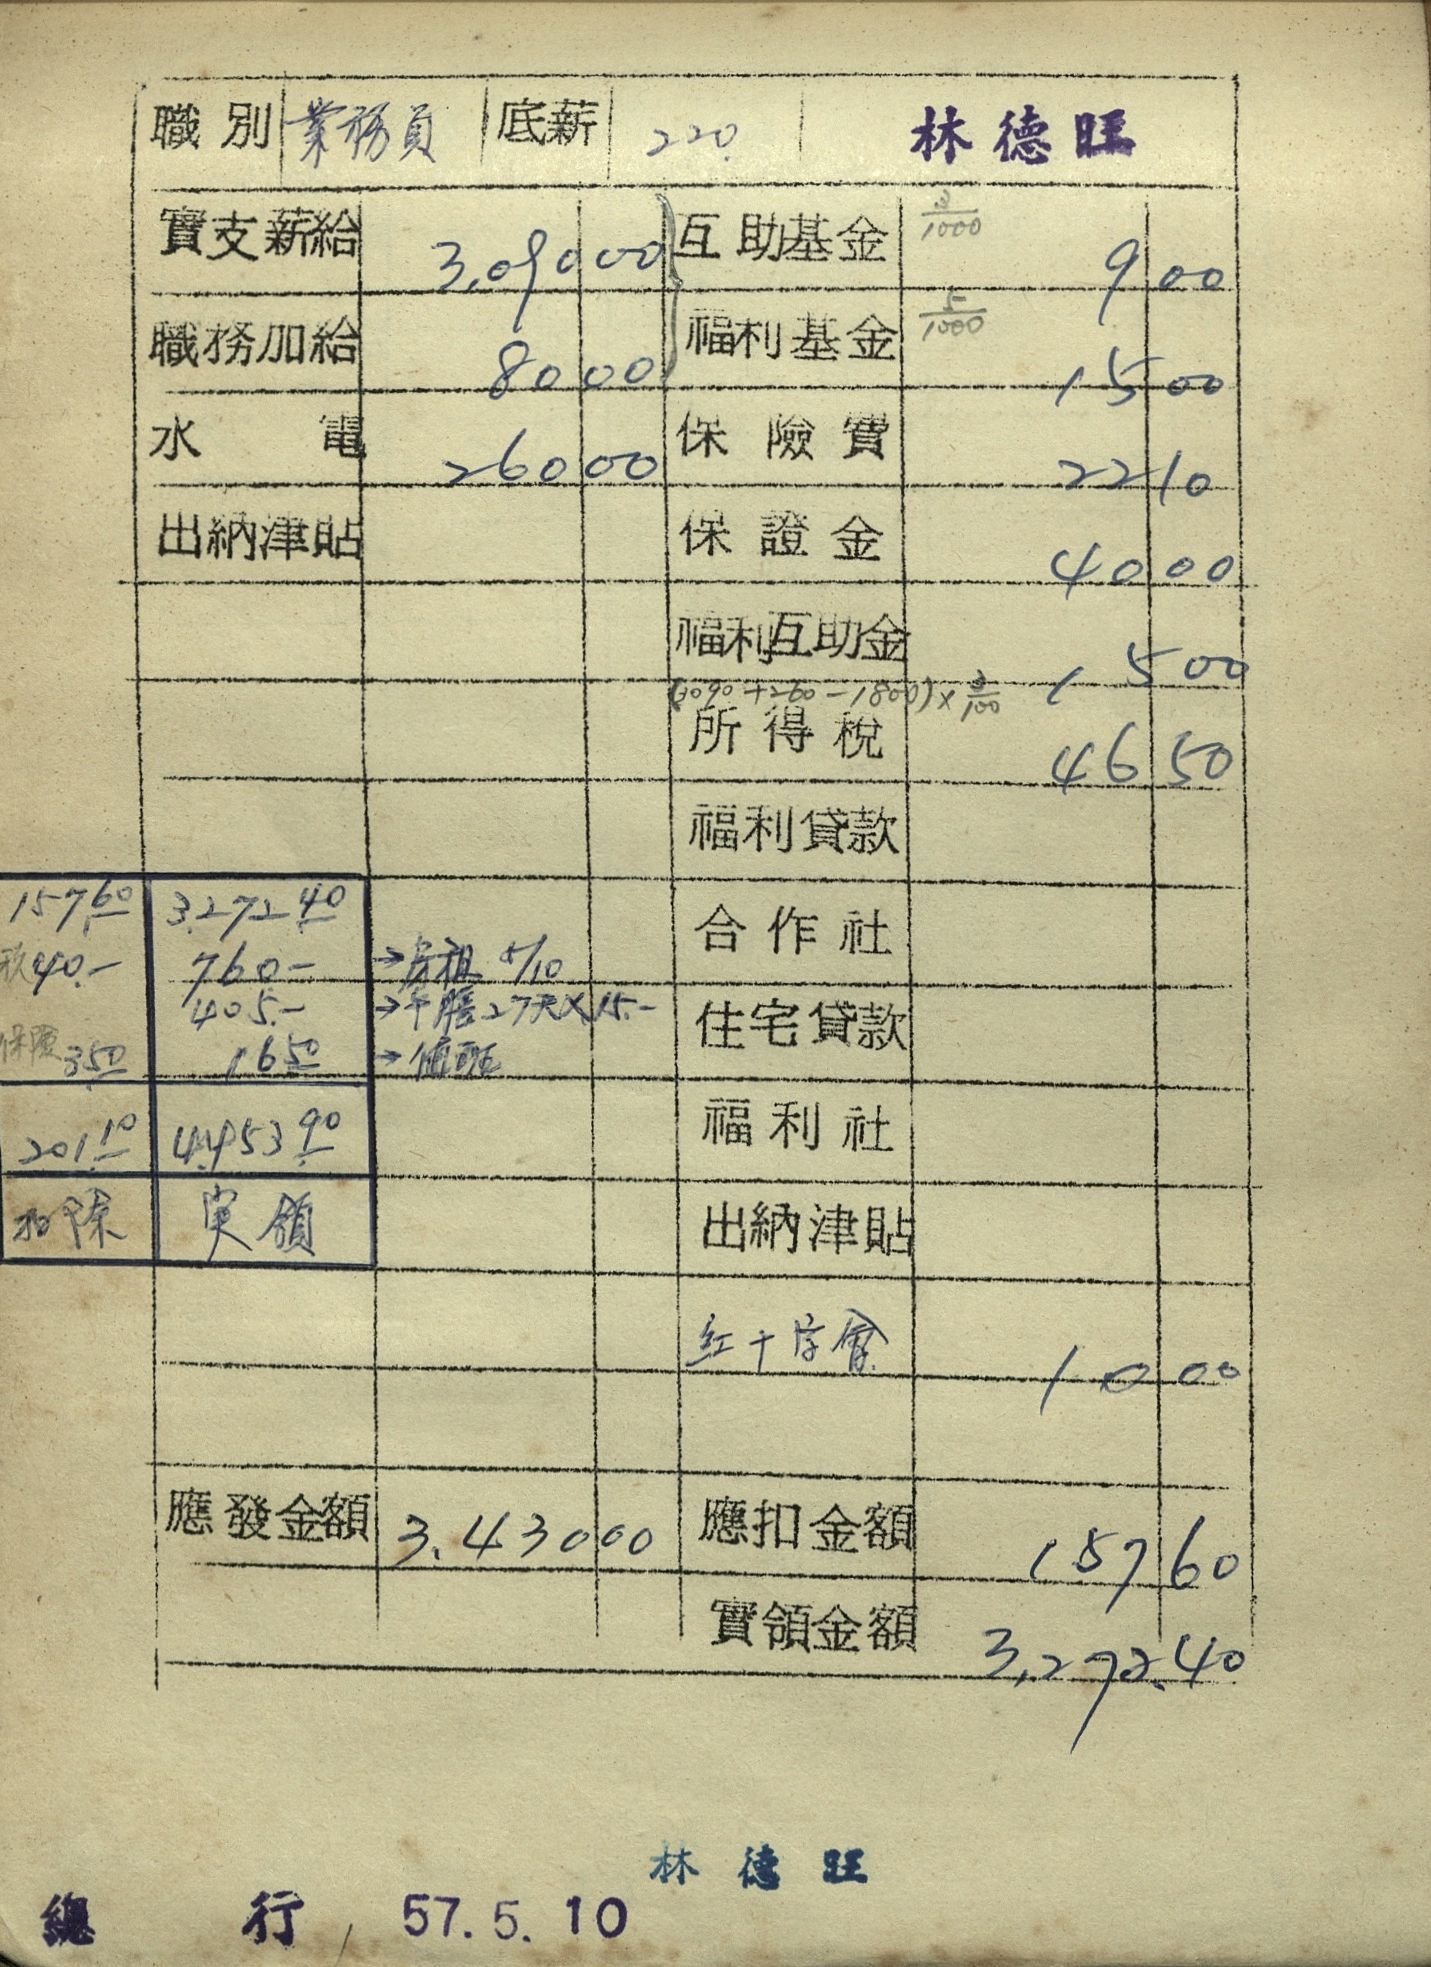 職別 業務員 底薪 220. 林德旺
實支薪給 3,090 00 互助基金 3/1000 9 00
職務加給 80 00 福利基金 5/1000 15 00
水電 260 00 保險費 22 10
出納津貼 保證金 40 00
福利互助金 15 00
(3090+260-1800)×3/100
所得稅 46 50
福利貸款
157.60 3,272.40 合作社
40.- 760.- →房租 5/10
405.- →午膳27天×15.- 住宅貸款
保險 35.50 16.50 →值班
201.10 4,453.90 福利社
扣除 実領 出納津貼
紅十字會 10 00
應發金額 3,430 00 應扣金額 157 60
實領金額 3,272.40
林德旺
總行 57.5.10